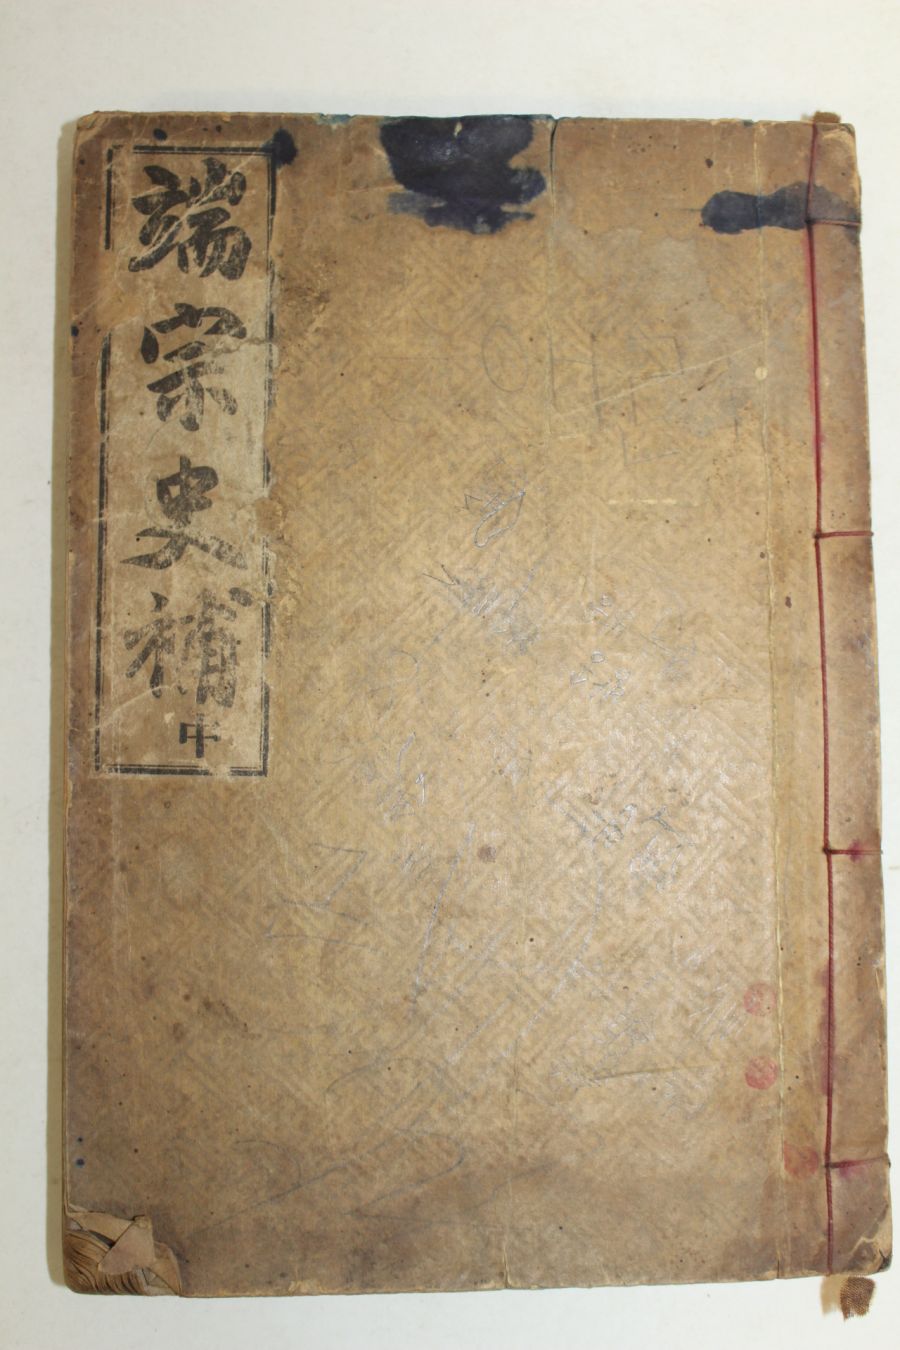 端宗史補 中